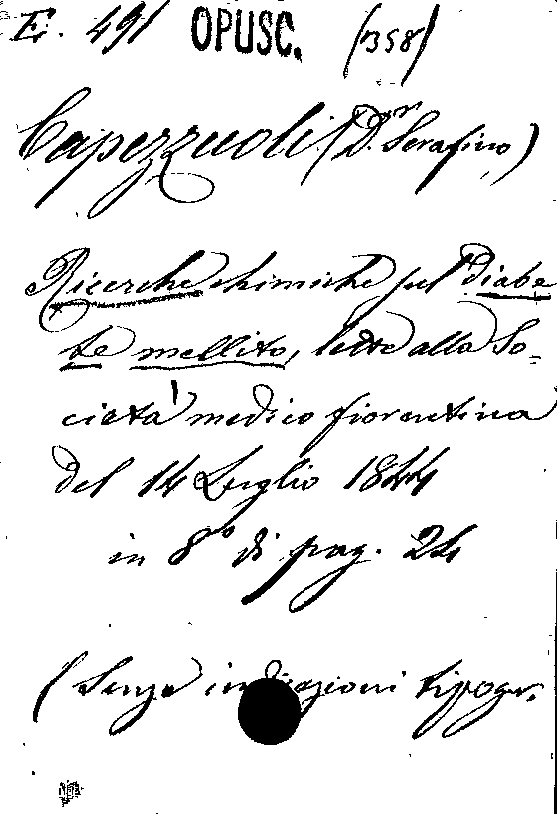 E. 491 OPUSC. (1358)
Capezzuoli (D.r Serafino)
Ricerche chimiche sul diabe
te mellito, lette alla So=
cietà medico fiorentina
del 14 Luglio 1844
in 8º di pag. 24
(Senza indicazioni tipogr.